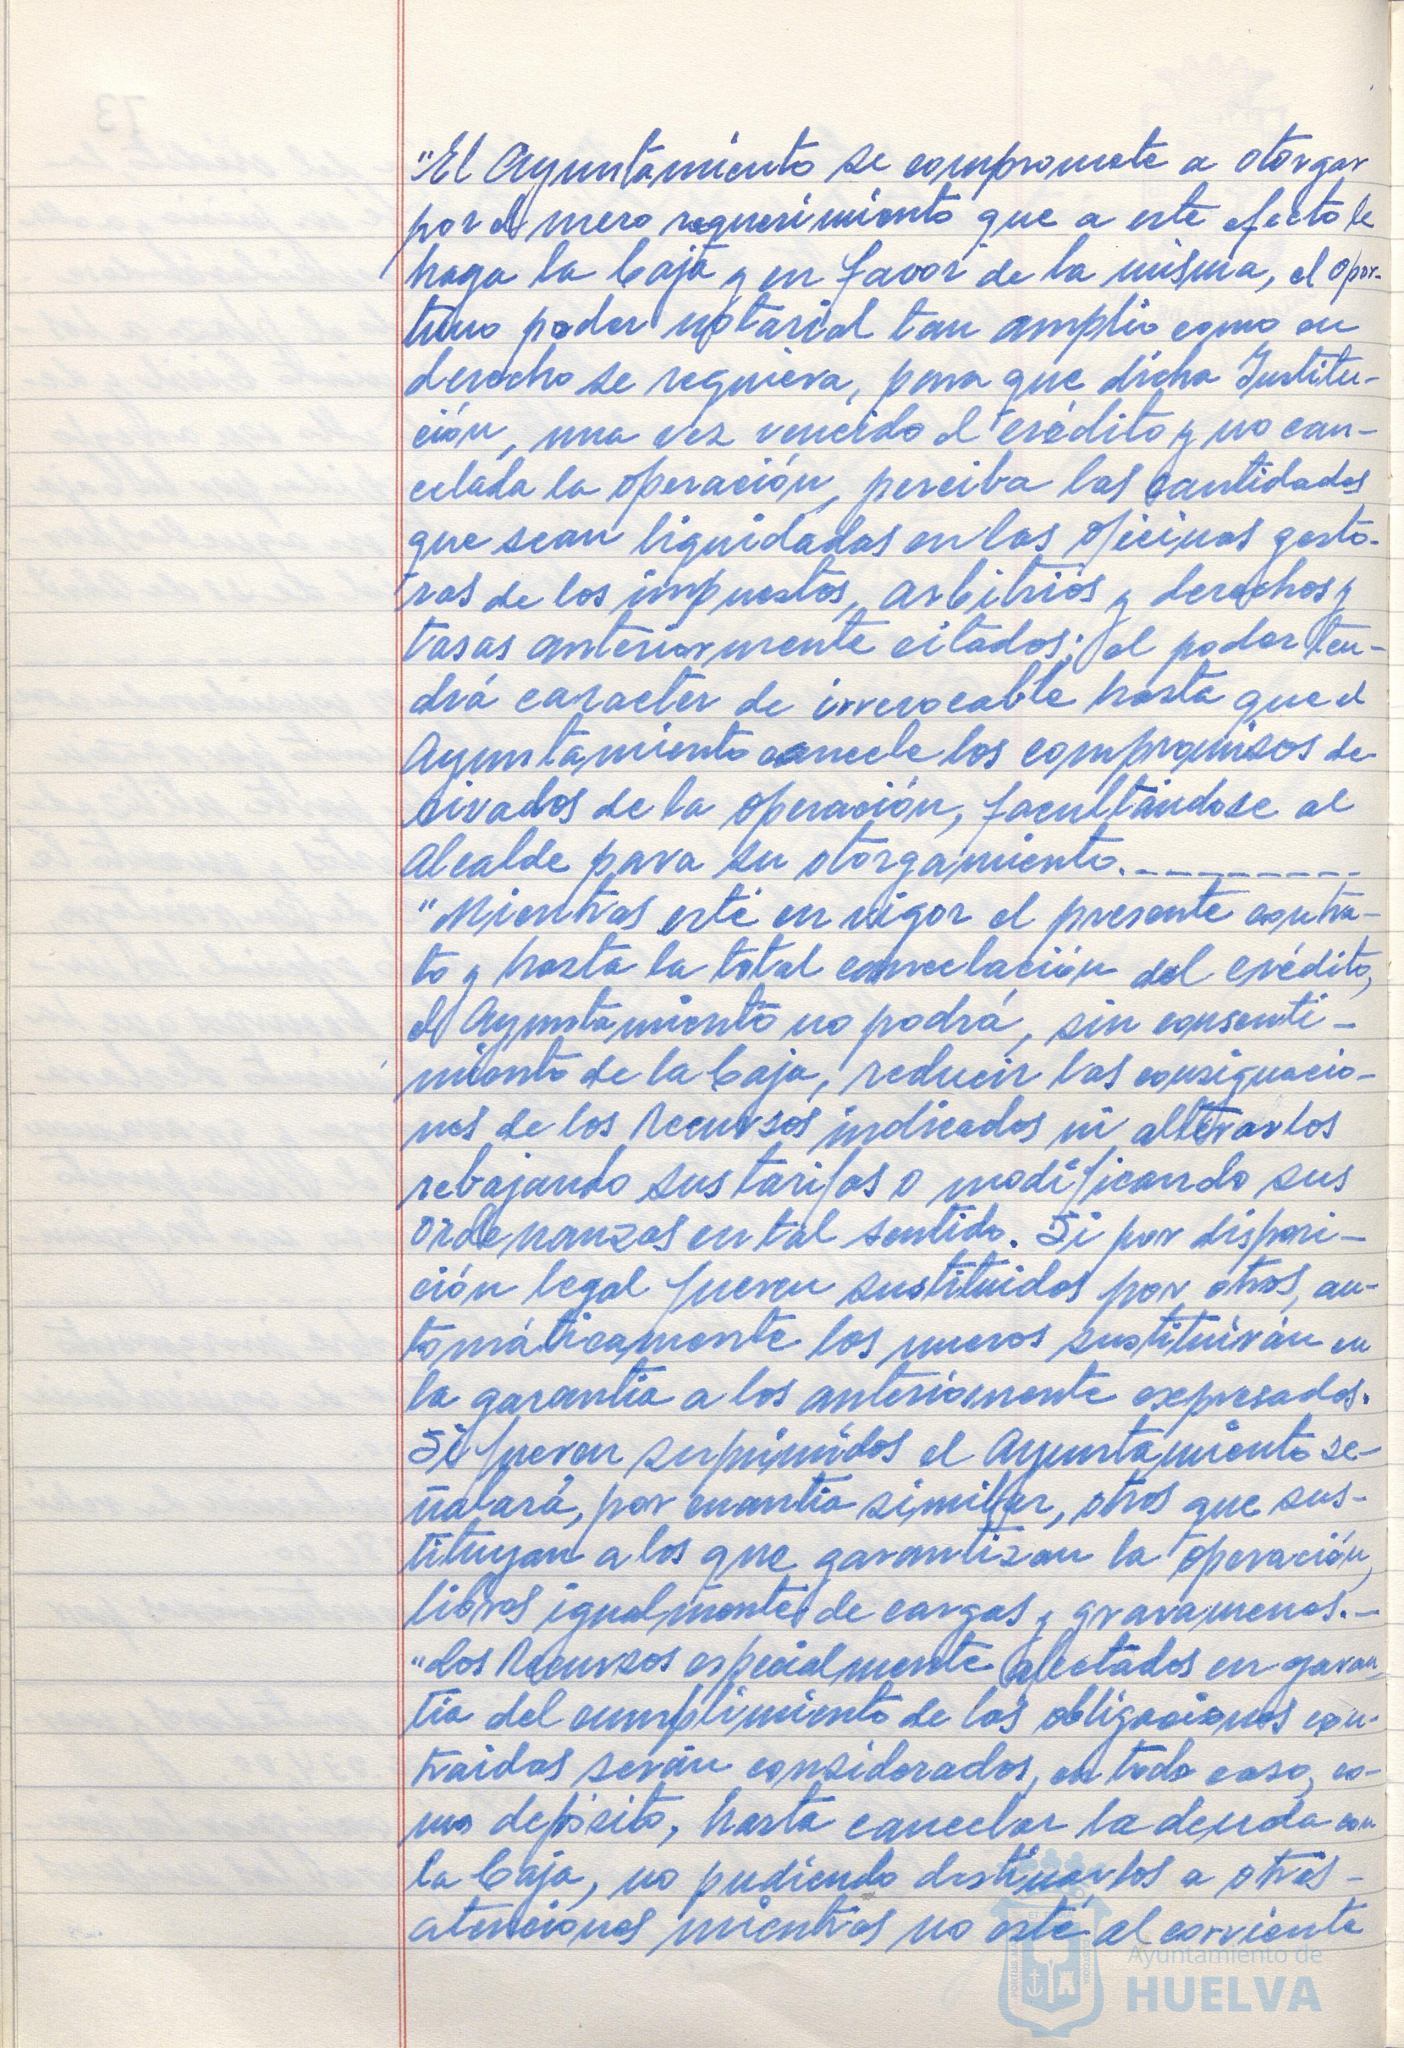 "El Ayuntamiento se compromete a otorgar
por el mero requerimiento que a este efecto le
haga la Caja y en favor de la misma, el opor-
tuno poder notarial tan amplio como en
derecho se requiera, para que dicha Institu-
ción, una vez vencido el crédito y no can-
celada la operación, perciba las cantidades
que sean liquidadas en las oficinas gesto-
ras de los impuestos, arbitrios y derechos y
tasas anteriormente citados; el poder ten-
drá caracter de irrevocable hasta que el
Ayuntamiento cancele los compromisos de-
rivados de la operación, facultándose al
Alcalde para su otorgamiento.---------
"Mientras esté en vigor el presente contra-
to y hasta la total cancelación del crédito,
el Ayuntamiento no podrá, sin consenti-
miento de la Caja, reducir las consignacio-
nes de los Recursos indicados ni alterarlos
rebajando sus tarifas o modificando sus
Ordenanzas en tal sentido. Si por disposi-
ción legal fueren sustituidos por otros, au-
tomáticamente los nuevos sustituirán en
la garantia a los anteriormente expresados.
Si fueren suprimidos el Ayuntamiento se-
ñalará, por cuantia similar, otros que sus-
tituyan a los que garantizan la operación,
libres igualmente de cargas y gravamenes.-
"Los Recursos especialmente afectados en garan
tia del cumplimiento de las obligaciones con-
traidas serán considerados, en todo caso, co-
mo depósito, hasta cancelar la deuda con
la Caja, no pudiendo destinarlos a otras-
atenciones mientras no esté al corriente
Ayuntamiento de
HUELVA